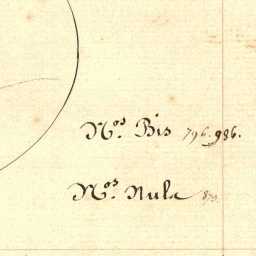 Nos. Bis 796. 986.
Nos. Nula